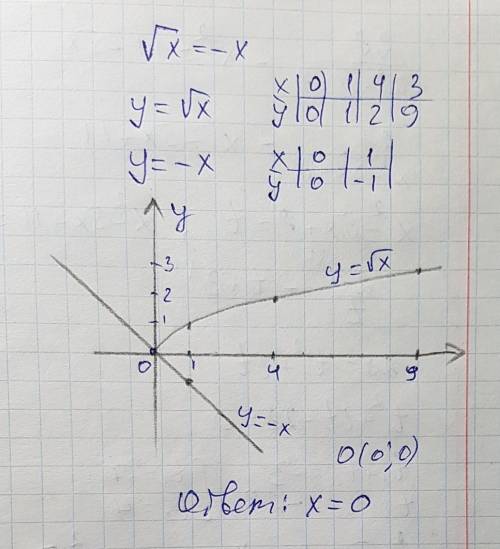 √x = -x
y = √x
x | 0 | 1 | 4 | 3
y | 0 | 1 | 2 | 9
y = -x
x | 0 | 1 |
y | 0 | -1 |
y
3
2
1
y = √x
0 1 4 9
y = -x
0(0;0)
Ответ: x = 0